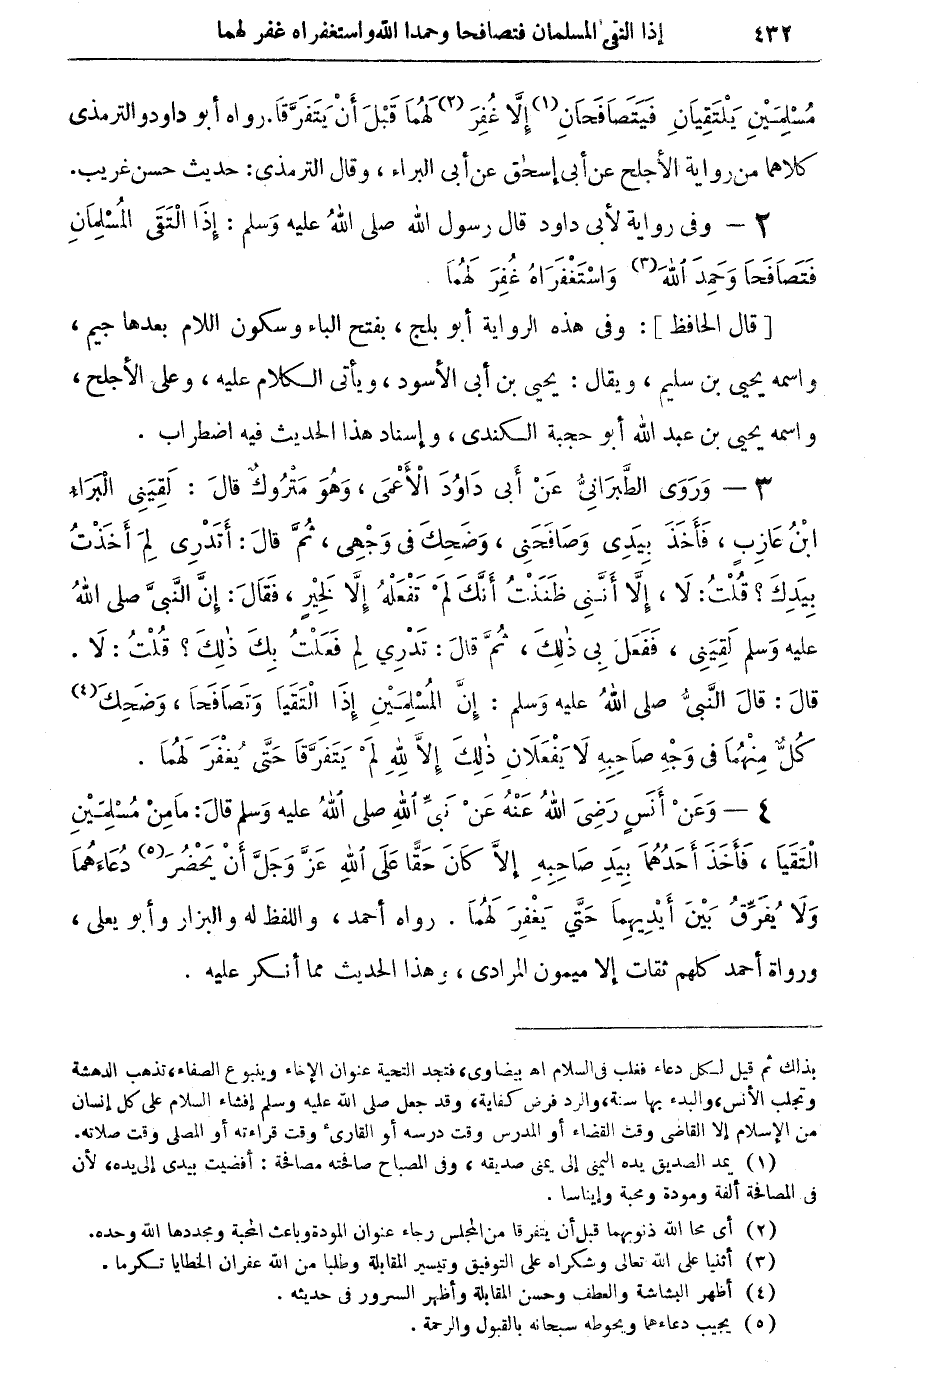 ٤٣٢ إذا التقى المسلمان فتصافحا وحمدا الله واستغفراه غفر لهما
مُسْلِمَيْنِ يَلْتَقِيَانِ فَيَتَصَافَحَانِ(١) إِلَّا غُفِرَ(٢) لَهُمَا قَبْلَ أَنْ يَتَفَرَّقَا. رواه أبو داود والترمذى
كلاهما من رواية الأجلح عن أبى إسحٰق عن أبى البراء ، وقال الترمذى: حديث حسن غريب.
٢ — وفى رواية لأبى داود قال رسول الله صلى اللهُ عليه وَسلم : إِذَا الْتَقَى الْمُسْلِمَانِ
فَتَصَافَحَا وَحَمِدَ اللهَ(٣) وَاسْتَغْفَرَاهُ غُفِرَ لَهُمَا .
[ قال الحافظ ] : وفى هذه الرواية أبو بلج ، بفتح الباء وسكون اللام بعدها جيم ،
واسمه يحيى بن سليم ، ويقال : يحيى بن أبى الأسود ، ويأتى الكلام عليه ، وعلى الأجلح ،
واسمه يحيى بن عبد الله أبو حجية الكندى ، وإسناد هذا الحديث فيه اضطراب .
٣ — وَرَوَى الطَّبَرَانِىُّ عَنْ أَبى دَاوُدَ الْأَعْمَى ، وَهُوَ مَتْرُوكٌ قالَ : لَقِيَنِى الْبَرَاءُ
ابْنُ عَازِبٍ ، فَأَخَذَ بِيَدِى وَصَافَحَنِى ، وَضَحِكَ فى وَجْهِى ، ثُمَّ قالَ : أَتَدْرِى لِمَ أَخَذْتُ
بِيَدِكَ ؟ قُلْتُ : لَا ، إِلَّا أَنَّنِى ظَنَنْتُ أَنَّكَ لَمْ تَفْعَلْهُ إِلَّا لِخَيْرٍ ، فَقَالَ : إِنَّ النَّبِىَّ صلى اللهُ
عليه وَسلم لَقِيَنِى ، فَفَعَلَ بِى ذٰلِكَ ، ثُمَّ قالَ : تَدْرِي لِم فَعَلْتُ بِكَ ذٰلِكَ ؟ قُلْتُ : لَا .
قالَ : قالَ النَّبِىُّ صلى اللهُ عليه وَسلم : إِنَّ الْمُسْلِمَيْنِ إِذَا الْتَقَيَا وَتَصَافَحَا ، وَضَحِكَ(٤)
كُلٌّ مِنْهُمَا فى وَجْهِ صاحِبِهِ لَا يَفْعَلَانِ ذٰلِكَ إِلاَّ لِلهِ لَمْ يَتَفَرَّقَا حَتَّى يُغْفَرَ لَهُمَا .
٤ — وَعَنْ أَنَسٍ رَضِىَ اللهُ عَنْهُ عَنْ نَبِىِّ اللهِ صلى اللهُ عليه وَسلم قالَ : مَامِنْ مُسْلِمَيْنِ
الْتَقَيَا ، فَأَخَذَ أَحَدُهُمَا بِيَدِ صَاحِبِهِ إِلاَّ كَانَ حَقًّا عَلَى اللهِ عَزَّ وَجَلَّ أَنْ يَحْضُرَ(٥) دُعَاءَهُمَا
وَلَا يُفَرِّقُ بَيْنَ أَيْدِيهِمَا حَتَّي يَغْفِرَ لَهُمَا . رواه أحمد ، واللفظ له والبزار وأبو يعلى ،
ورواة أحمد كلهم ثقات إلا ميمون المرادى ، وهذا الحديث مما أنكر عليه .
بذلك ثم قيل لكل دعاء فغلب فى السلام اه بيضاوى، فتجد التحية عنوان الإخاء وينبوع الصفاء، تذهب الدهشة
وتجلب الأنس، والبدء بها سنة، والرد فرض كفاية، وقد جعل صلى الله عليه وسلم إفشاء السلام على كل إنسان
من الإسلام إلا القاضى وقت القضاء أو المدرس وقت درسه أو القارىء وقت قراءته أو المصلى وقت صلاته.
(١) يمد الصديق يده اليمنى إلى يمنى صديقه ، وفى المصباح صافحته مصافحة : أفضيت بيدى إلى يده، لأن
فى المصافحة ألفة ومودة ومحبة وإيناسا .
(٢) أى محا الله ذنوبهما قبل أن يتفرقا من المجلس رجاء عنوان المودة وباعث المحبة ومجددها الله وحده.
(٣) أثنيا على الله تعالى وشكراه على التوفيق وتيسير المقابلة وطلبا من الله غفران الخطايا تكرما .
(٤) أظهر البشاشة والعطف وحسن المقابلة وأظهر السرور فى حديثه .
(٥) يجيب دعاءهما ويحوطه سبحانه بالقبول والرحمة .